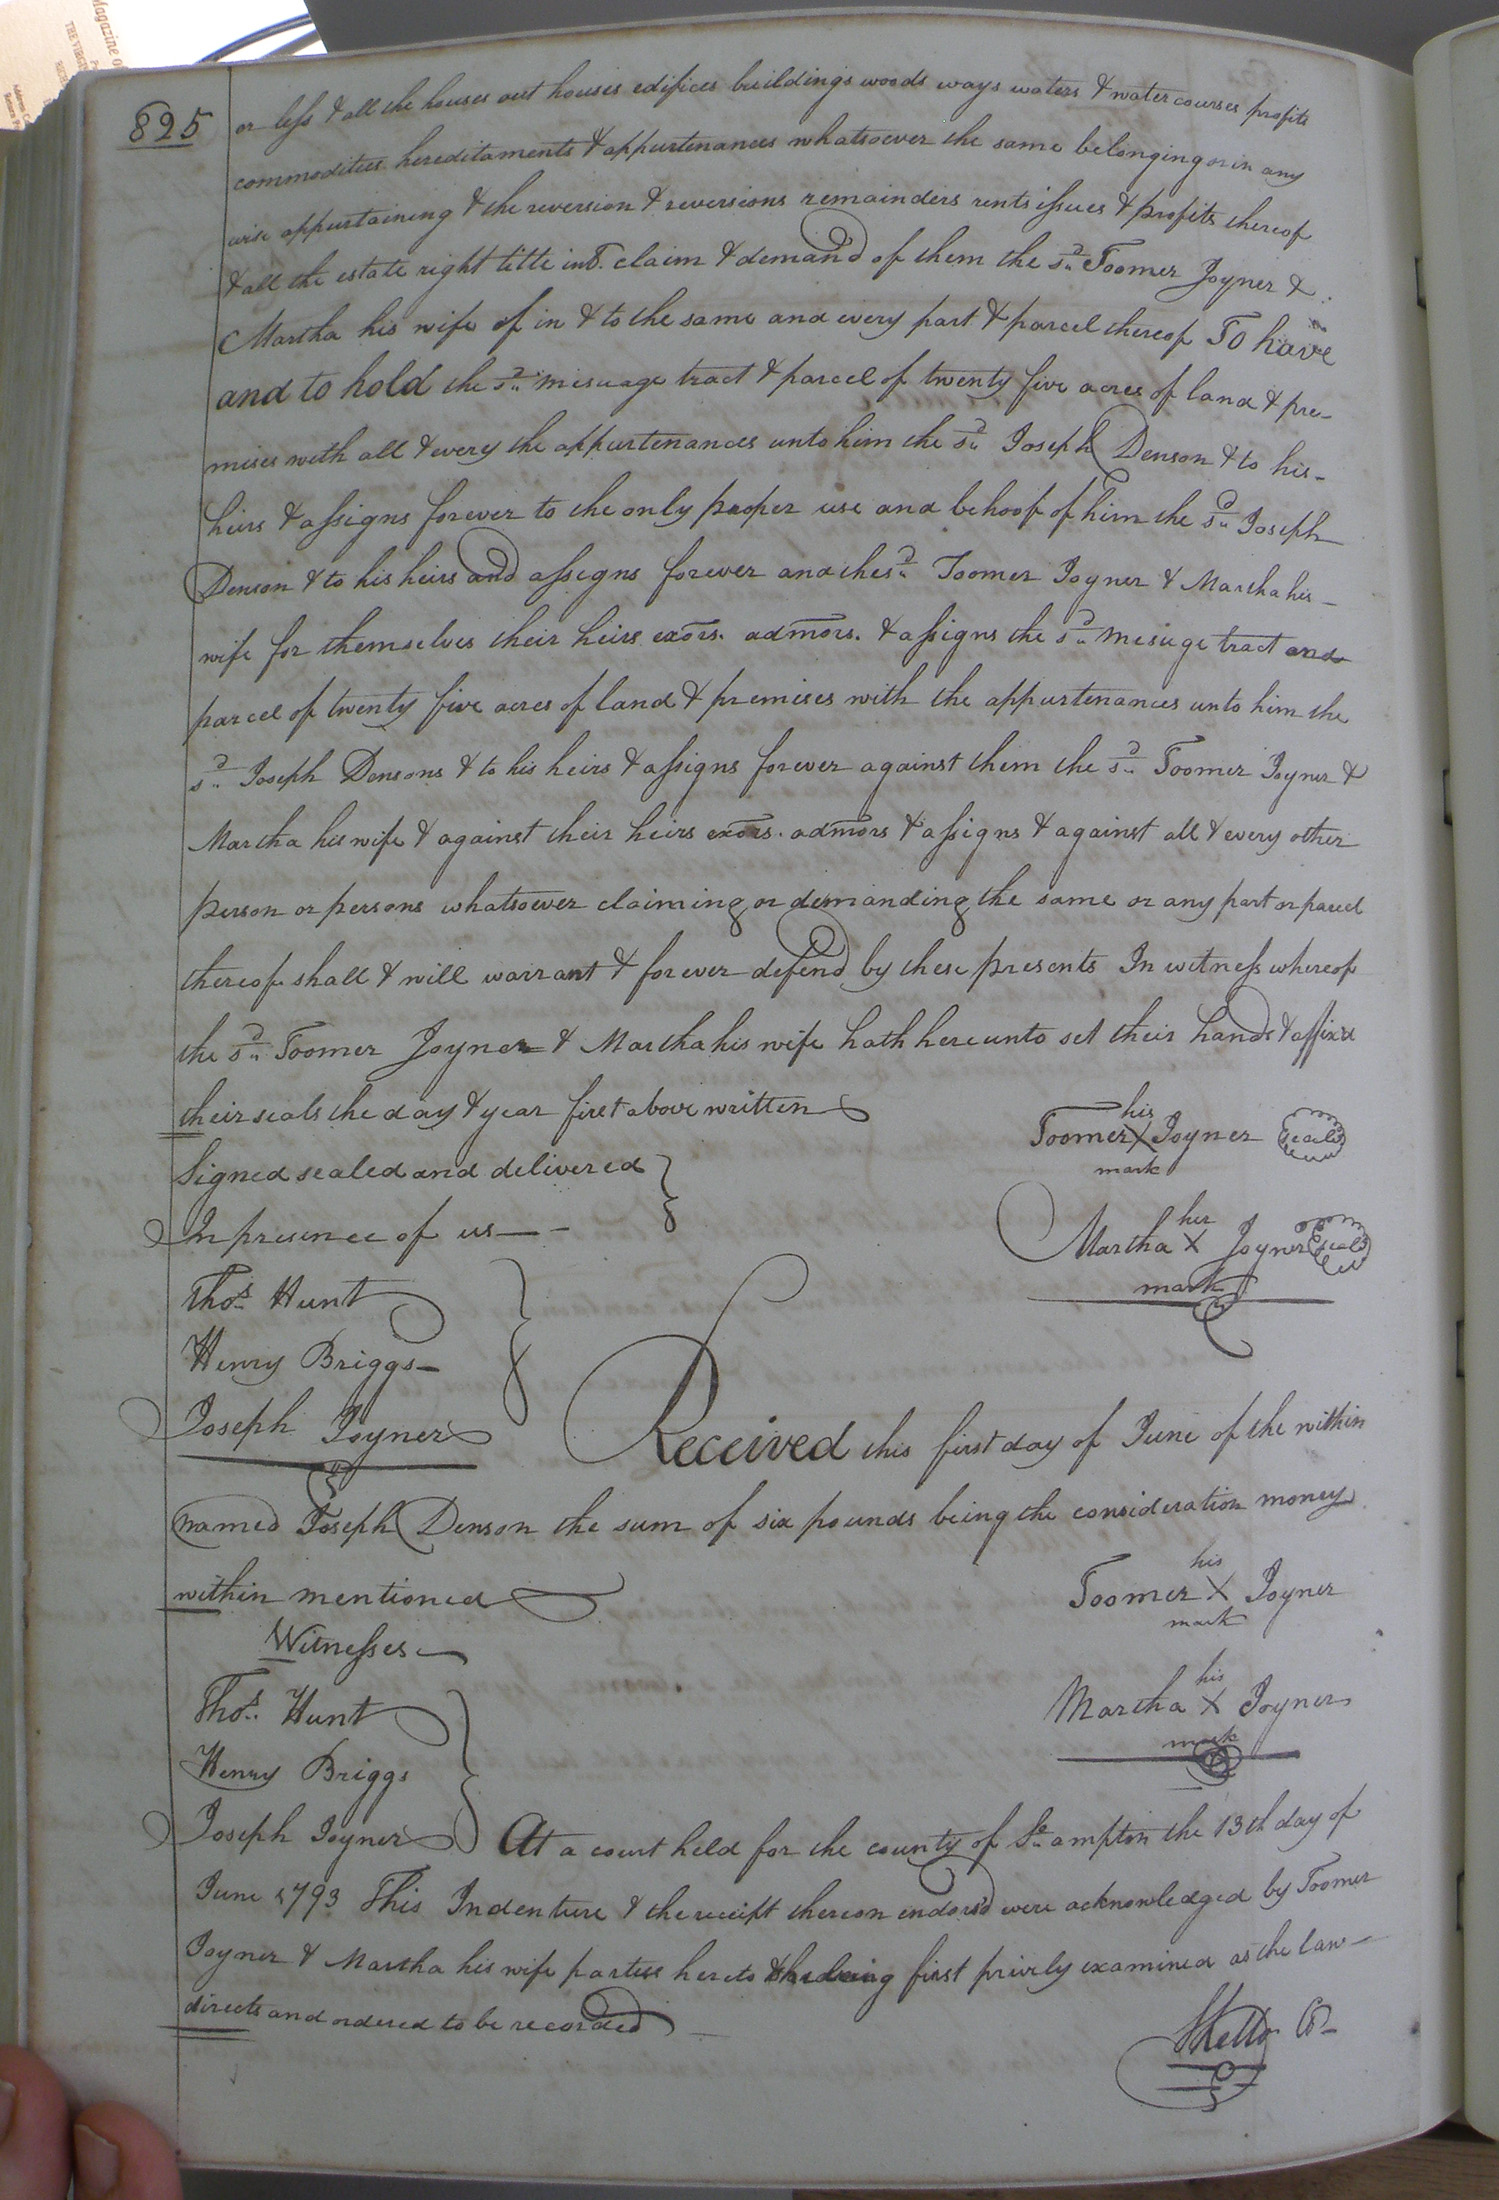 Magazine o
THE VIRGI
825
or less & all the houses out houses edifices buildings woods ways waters & water courses profits
commodities hereditaments & appurtenances whatsoever the same belonging or in any
wise appurtaining & the reversion & reversions remainders rents issues & profits thereof
& all the estate right title int. claim & demand of them the sd. Toomer Joyner &
Martha his wife of in & to the same and every part & parcel thereof To have
and to hold the sd. mesuage tract & parcel of twenty five acres of land & pre-
mises with all & every the appurtenances unto him the sd. Joseph Denson & to his-
heirs & assigns forever to the only proper use and behoof of him the sd. Joseph
Denson & to his heirs and assigns forever and the sd. Toomer Joyner & Martha his-
wife for themselves their heirs exors. admors. & assigns the sd. mesuge tract and
parcel of twenty five acres of land & premises with the appurtenances unto him the
sd. Joseph Densons & to his heirs & assigns forever against them the sd. Toomer Joyner &
Martha his wife & against their heirs exors. admors & assigns & against all & every other
person or persons whatsoever claiming or demanding the same or any part or parcel
thereof shall & will warrant & forever defend by these presents In witness whereof
the sd. Toomer Joyner & Martha his wife hath hereunto set their hands & affixd
their seals the day & year first above written
his
Toomer X Joyner seal
mark
Signed sealed and delivered
In presence of us--
her
Martha X Joyner seal
mark
Thos. Hunt
Henry Briggs-
Joseph Joyner
Received this first day of June of the within
named Joseph Denson the sum of six pounds being the consideration money
within mentioned
his
Toomer X Joyner
mark
Witnesses
his
Martha X Joyner
mark
Thos. Hunt
Henry Briggs
Joseph Joyner
At a court held for the county of So.ampton the 13th day of
June 1793 This Indenture & the receipt thereon endorsd were acknowledged by Toomer
Joyner & Martha his wife parties hereto she being first privily examined as the law-
directs and ordered to be recorded